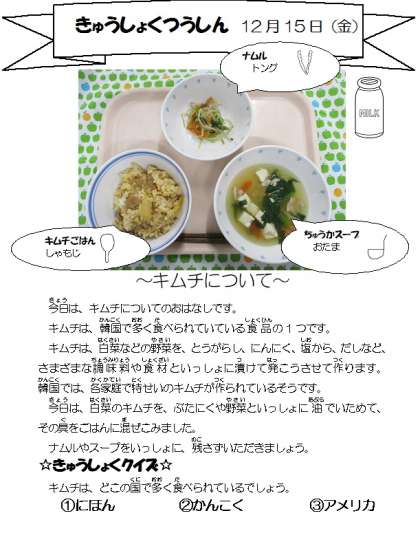 きゅうしょくつうしん 12月15日（金）
ナムル
トング
MILK
キムチごはん
しゃもじ
ちゅうかスープ
おたま
～キムチについて～
今日は、キムチについてのおはなしです。
キムチは、韓国で多く食べられていている食品の1つです。
キムチは、白菜などの野菜を、とうがらし、にんにく、塩から、だしなど、
さまざまな調味料や食材といっしょに漬けて発こうさせて作ります。
韓国では、各家庭で特せいのキムチが作られているそうです。
今日は、白菜のキムチを、ぶたにくや野菜といっしょに油でいためて、
その具をごはんに混ぜこみました。
ナムルやスープをいっしょに、残さずいただきましょう。
☆きゅうしょくクイズ☆
キムチは、どこの国で多く食べられているでしょう。
①にほん ②かんこく ③アメリカ